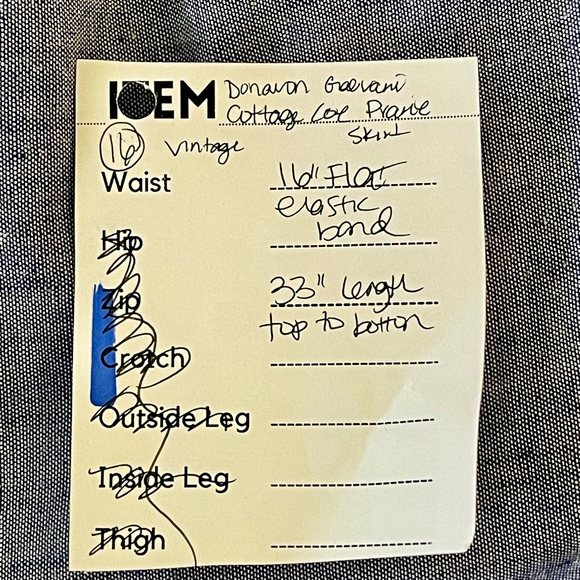 ITEM Donavon Galvani
Cottage Core Prairie
Skirt
16 Vintage
Waist 16" Flat
elastic
band
Hip
Zip 33" Length
top to bottom
Crotch
Outside Leg
Inside Leg
Thigh